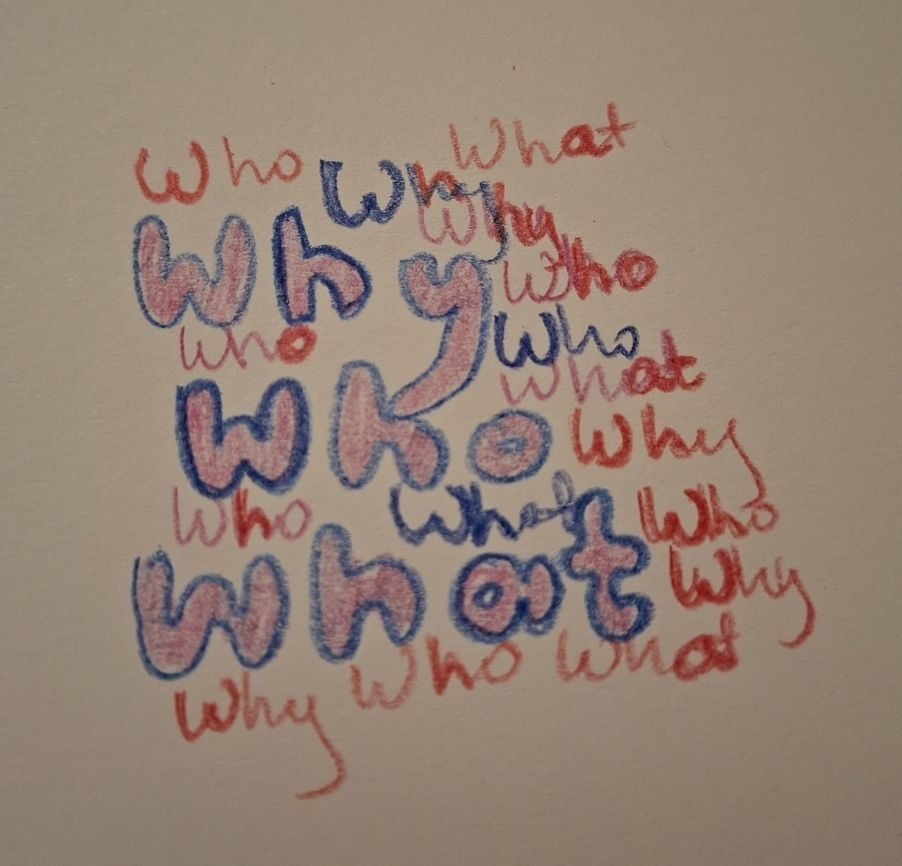 Who Why What
Why
Why Who
Who Who
What
Who Why
Who What Who
What Why
Why Who What